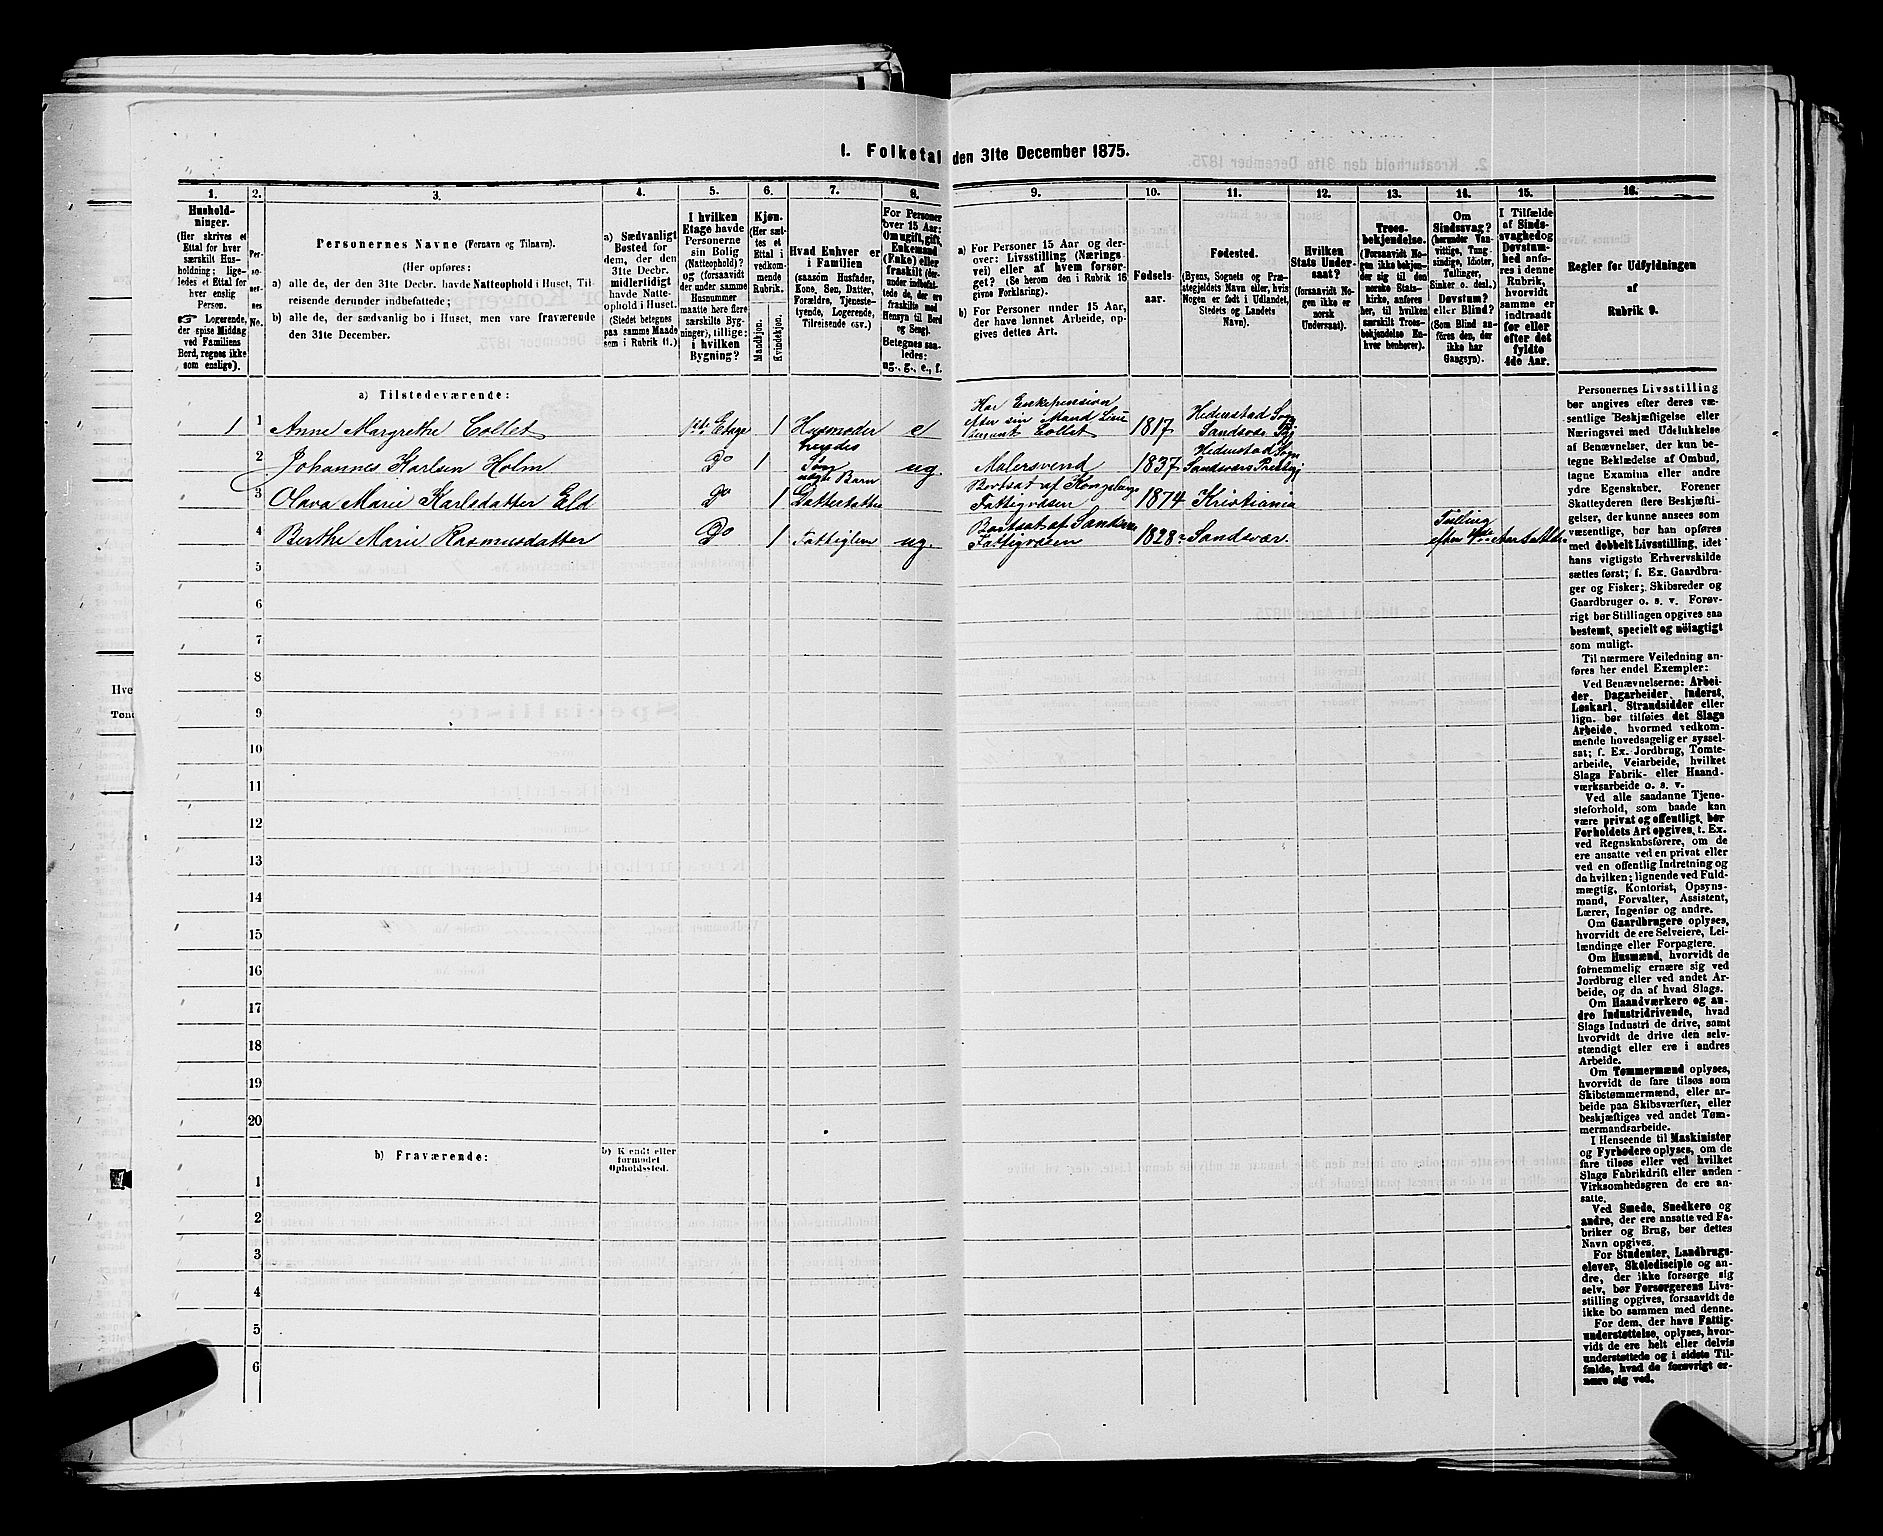 1. Folketal den 31te December 1875.
1.
Hushold-
ninger.
(Her skrives et
Ettal for hver
særskilt Hus-
holdning; lige-
ledes et Ettal for
hver enslig
Person.
☞ Logerende,
der spise Middag
ved Familiens
Bord, regnes ikke
som enslige).
2.
Per-
so-
ner-
nes
No.
3.
Personernes Navne (Fornavn og Tilnavn).
(Her opføres:
a) alle de, der den 31te Decbr. havde Natteophold i Huset, Til-
reisende derunder indbefattede;
b) alle de, der sædvanlig bo i Huset, men vare fraværende
den 31te December.
4.
a) Sædvanligt
Bosted for
dem, der den
31te Decbr.
midlertidigt
havde Natte-
ophold i Huset.
(Stedet betegnes
paa samme Maade
som i Rubrik 11.)
5.
I hvilken
Etage havde
Personerne
sin Bolig
(Natteophold)?
og (forsaavidt
der under samme
Husnummer
maatte høre flere
særskilte Byg-
ninger), tillige:
i hvilken
Bygning?
6.
Kjøn.
(Her sæt-
tes et
Ettal i
vedkom-
mende
Rubrik.
Mandkjøn.
Kvindekjøn.
7.
Hvad Enhver er
i Familien
(saasom Husfader,
Kone, Søn, Datter,
Forældre, Tjeneste-
tyende, Logerende,
Tilreisende osv.)
8.
For Personer
over 15 Aar:
Om ugift, gift,
Enkemand
(Enke) eller
fraskilt (der-
under indbefat-
tede de, der ere
fraskilte med
Hensyn til Bord
og Seng).
Betegnes saa-
ledes:
ug., g., e., f.
9.
a) For Personer 15 Aar og der-
over: Livsstilling (Nærings-
vei) eller af hvem forsør-
get? (Se herom den i Rubrik 16
givne Forklaring).
b) For Personer under 15 Aar,
der have lønnet Arbeide, op-
gives dettes Art.
10.
Fødsels-
aar.
11.
Fødested.
(Byens, Sognets og Præ-
stegjeldets Navn eller, hvis
Nogen er født i Udlandet,
Stedets og Landets
Navn).
12.
Hvilken
Stats Under-
saat?
(forsaavidt No-
gen ikke er
norsk
Undersaat).
13.
Troes-
bekjendelse.
(Forsaavidt No-
gen ikke bekjen-
der sig til den
norske Stats-
kirke, anføres
her, til hvilken
særskilt Troes-
bekjendelse En-
hver henhører).
14.
Om
Sindssvag?
(herunder Van-
vittige, Tung-
sindige, Idioter,
Tullinger,
Sinker o. desl.)
Døvstum?
eller Blind?
(Som Blind an-
føres den, der
ikke har
Gangsyn).
15.
I Tilfælde
af Sinds-
svaghed og
Døvstum-
hed anfø-
res i denne
Rubrik,
hvorvidt
samme er
indtraadt
før eller
efter det
fyldte
4de Aar.
16.
Regler for Udfyldningen
af
Rubrik 9.
a) Tilstedeværende:
1 1 Anne Margrethe Collet 1ste Etage 1 Husmoder e Har Enkepension efter sin Mand Lieutenant Collet 1817 Hedenstad Sogn Sandsvær Pgj
2 Johannes Karlsen Holm Do 1 hendes Søn ug. Malersvend 1837 Hedenstad Sogn Sandsvær Præstegj
3 Olava Marie Karlsdatter Eld Do 1 uægte Barn Datterdatter Bortsat af Kongsbergs Fattigvæsen 1874 Kristiania
4 Berthe Marie Rasmusdatter Do 1 Fattiglem ug. Bortsat af Sandsvær Fattigvæsen 1828 Sandsvær. Tulling efter 4de Aar
5
6
7
8
9
10
11
12
13
14
15
16
17
18
19
20
b) Fraværende:
b) Kjendt eller
formodet
Opholdssted.
1
2
3
4
5
6
Personernes Livsstilling
bør angives efter deres væ-
sentlige Beskjæftigelse eller
Næringsvei med Udelukkelse
af Benævnelser, der kun be-
tegne Beklædelse af Ombud,
tagne Examina eller andre
ydre Egenskaber. Forener
Skatteyderen flere Beskjæfti-
gelser, der kunne ansees som
væsentlige, bør han opføres
med dobbelt Livsstilling, idet
hans vigtigste Erhvervskilde
sættes først; f. Ex. Gaardbru-
ger og Fisker; Skibsreder og
Gaardbruger o. s. v. Forøv-
rigt bør Stillingen opgives saa
bestemt, specielt og nøiagtigt
som muligt.
Til nærmere Veiledning an-
føres her endel Exempler:
Ved Benævnelserne: Arbei-
der, Dagarbeider, Inderst,
Løskarl, Strandsidder eller
lign. bør tilføies det Slags
Arbeide, hvormed vedkom-
mende hovedsagelig er syssel-
sat; f. Ex. Jordbrug, Tomte-
arbeide, Veiarbeide, hvilket
Slags Fabrik- eller Haand-
værksarbeide o. s. v.
Ved alle saadanne Tjene-
steforhold, som baade kan
være privat og offentligt, bør
Forholdets Art opgives, t. Ex.
ved Regnskabsførere, om de
ere ansatte ved en privat eller
ved en offentlig Indretning og
da hvilken; lignende ved Fuld-
mægtig, Kontorist, Opsyns-
mand, Forvalter, Assistent,
Lærer, Ingeniør og andre.
Om Gaardbrugere oplyses,
hvorvidt de ere Selveiere, Lei-
lændinge eller Forpagtere.
Om Husmænd, hvorvidt de
fornemmelig ernære sig ved
Jordbrug eller ved andet Ar-
beide, og da af hvad Slags.
Om Haandværkere og an-
dre Industridrivende, hvad
Slags Industri de drive, samt
hvorvidt de drive den selv-
stændigt eller ere i andres
Arbeide.
Om Tømmermænd oplyses,
hvorvidt de fare tilsøs som
Skibstømmermænd, eller ar-
beide paa Skibsværfter, eller
beskjæftiges ved andet Tøm-
mermandsarbeide.
I Henseende til Maskinister
og Fyrbødere oplyses, om de
fare tilsøs eller ved hvilket
Slags Fabrikdrift eller anden
Virksomhedsgren de ere an-
satte.
Ved Smede, Snedkere og
andre, der ere ansatte ved Fa-
briker og Brug, bør dettes
Navn opgives.
For Studenter, Landbrugs-
elever, Skoledisciple og an-
dre, der ikke forsørge sig
selv, bør Forsørgerens Livs-
stilling opgives, forsaavidt de
ikke bo sammen med denne.
For dem, der have Fattig-
understøttelse, oplyses, hvor-
vidt de ere helt eller delvis
understøttede og i sidste Til-
fælde, hvad de forøvrigt er-
nære sig ved.